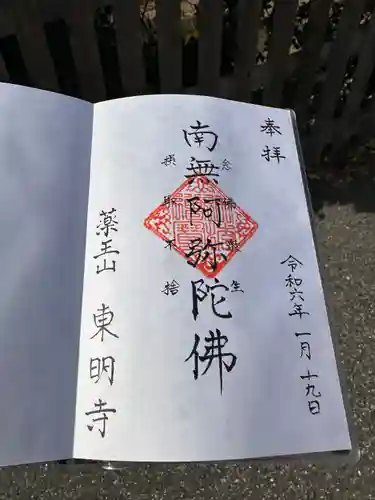 奉拝
令和六年一月十九日
念佛衆生
南無阿弥陀佛
摂取不捨
薬王山 東明寺